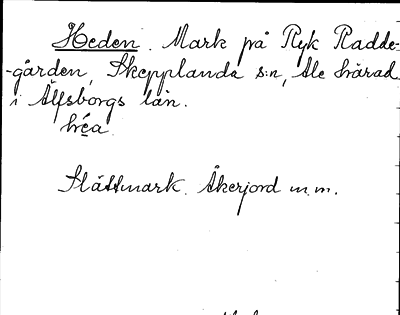 Heden. Mark på Ryk Radde-
-gården, Skepplanda s:n, Ale härad
i Älfsborgs län.
héa.
Slåttmark. Åkerjord m.m.